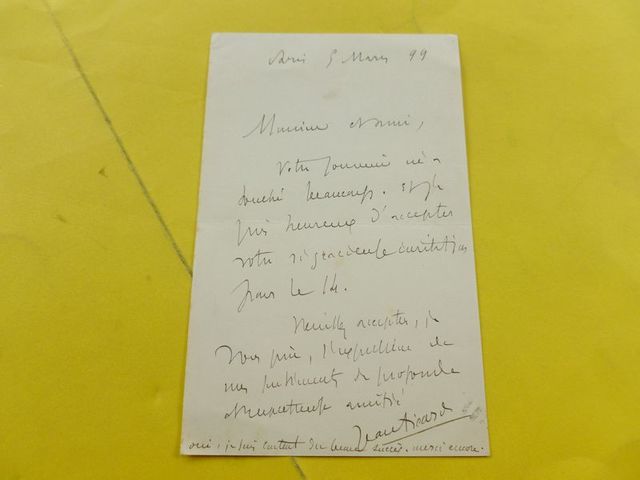 Paris 5 Mars 99
Monsieur et ami,
Votre souvenir m'a
touché beaucoup. et je
suis heureux d'accepter
votre si gracieuse invitation
pour le 14.
Veuillez accepter, je
vous prie, l'expression de
mes sentiments de profonde
et respectueuse amitié
oui, je suis content du beau succès. merci encore.